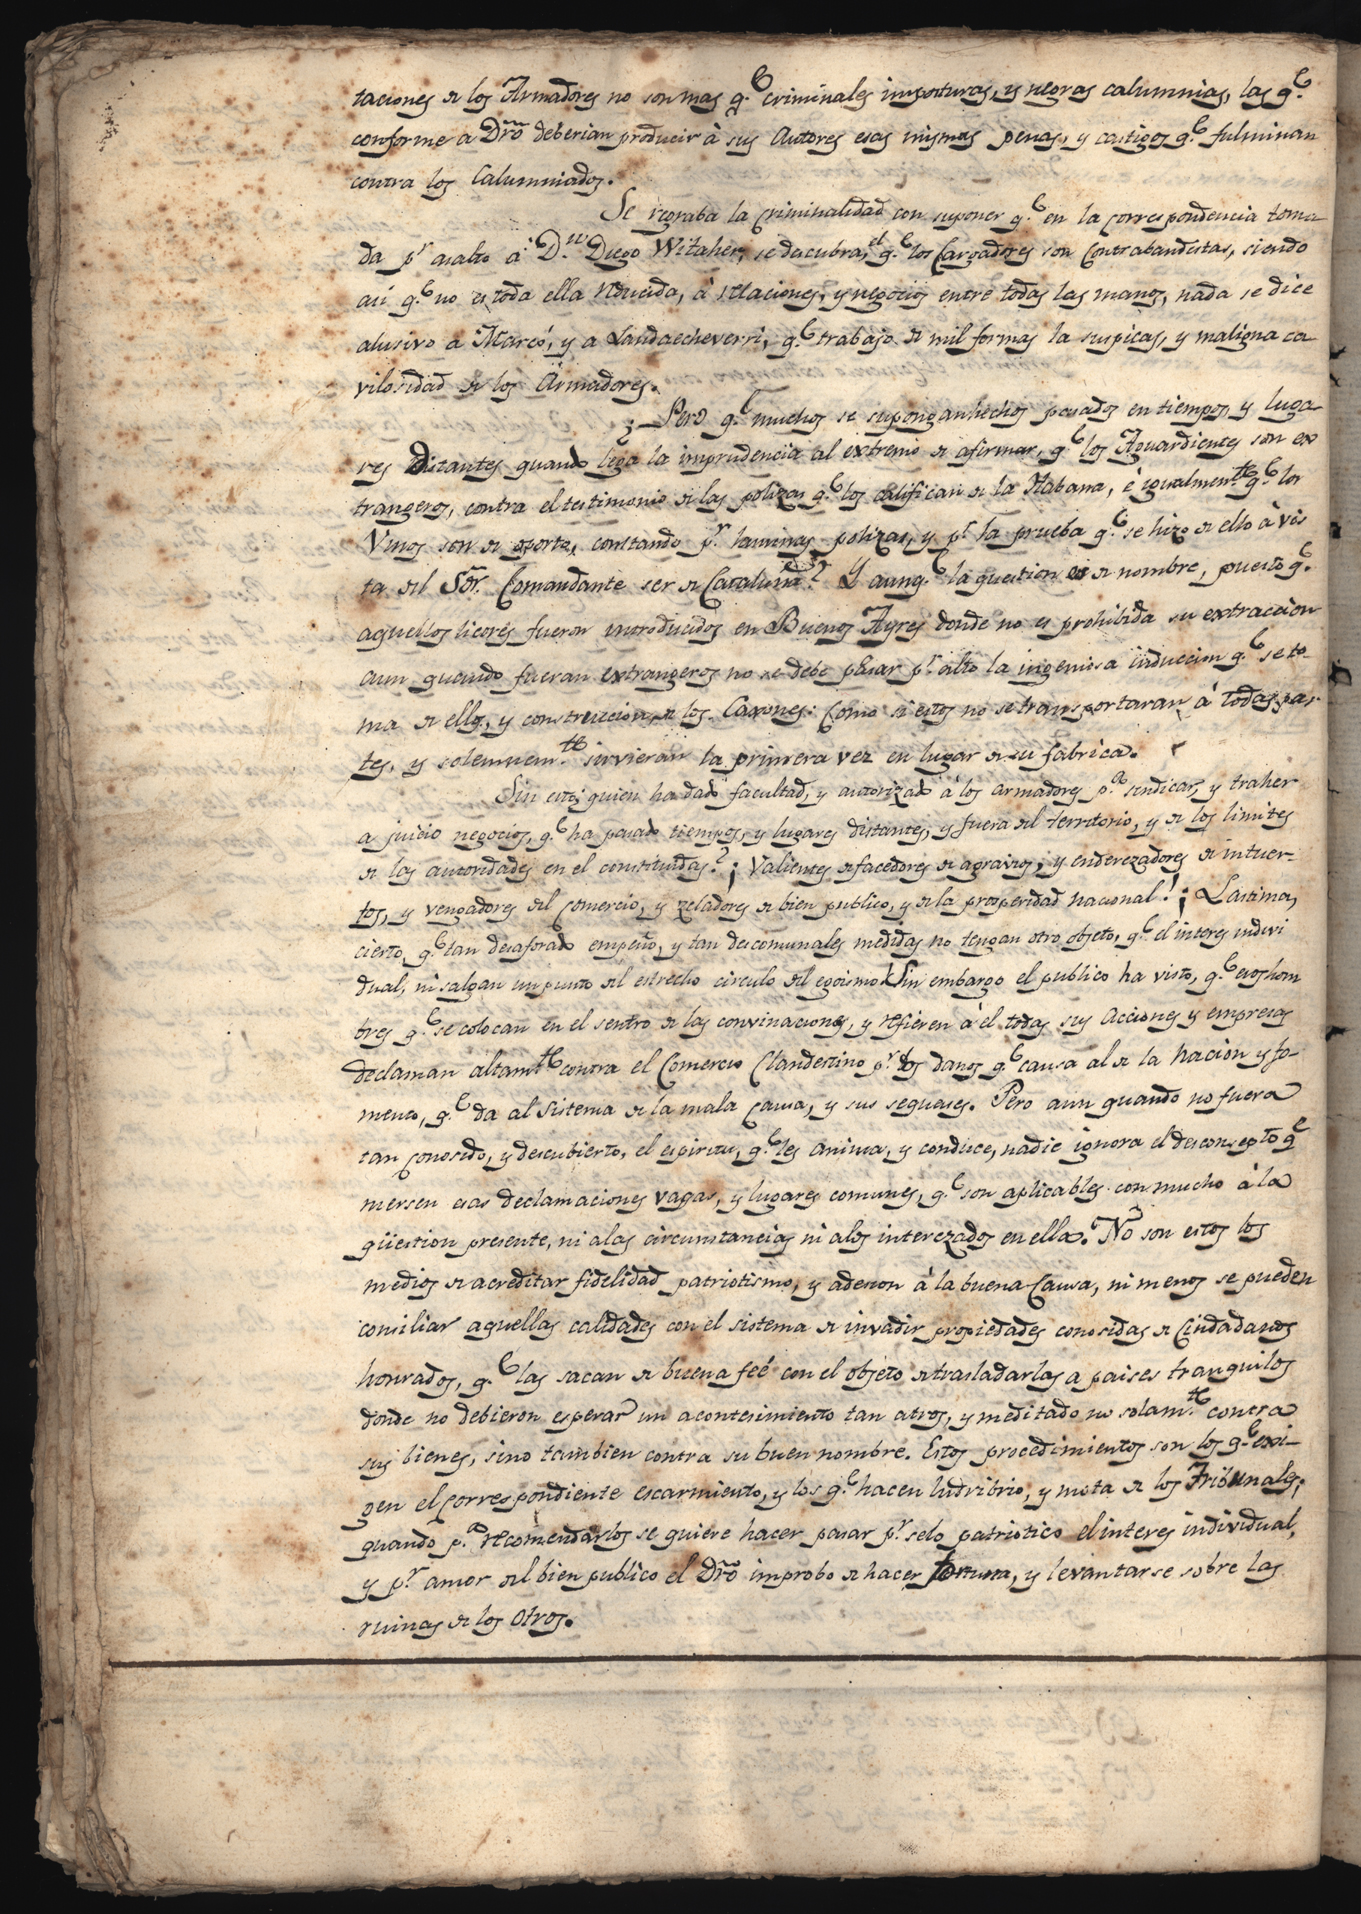 taciones de los Armadores no son mas q.e criminales imposturas, y negras calumnias, las q.e
conforme a Dro deberian producir à sus Autores esas mismas penas, y castigos q.e fulminan
contra los Calumniados.
Se regraba la criminalidad con suponer q.e en la correspondencia toma-
da p.r asalto á D.n Diego Witaker, se descubra, el q.e los Cargadores son Contrabandistas, siendo
asi q.e no es toda ella reducida, à relaciones, y negocios entre todas las manos, nada se dice
alusivo à Marcó, y a Landaecheverri, q.e trabajo de mil formas la suspicas, y maligna ca
vilosidad de los Armadores.
¿ Pero q.e muchos se supongan hechos pasados en tiempos, y luga-
res distantes quando llega la imprudencia al extremo de afirmar, q.e los Aguardientes son ex
trangeros, contra el testimonio de las polizas q.e los califican de la Habana, è igualmen.te q.e los
Vinos son de oporto, constando p.r las mismas polizas, y p.r la prueba q.e se hizo de ello à vis
ta del Sor. Comandante ser de Cataluña? Y aunq.e la question es de nombre, puesto q.e
aquellos licores fueron introducidos en Buenos Ayres donde no es prohibida su extraccion
aun quando fueran extrangeros no se debe pasar p.r alto la ingeniosa induccion q.e se to-
ma de ellos, y construccion de los Caxones: como si estos no se transportaran à todas par
tes, y solemnem.te sirvieran la primera vez en lugar de su fabrica.
Sin esto; quien ha dado facultad, y autorizado à los armadores p.a sindicar, y traher
a juicio negocios, q.e ha pasado tiempos, y lugares distantes, y fuera del territorio, y de los limites
de las autoridades en el constituidas? ¡ Valientes desfacedores de agravios, y enderezadores de intuer-
tos, y vengadores del comercio, y zeladores de bien publico, y de la prosperidad nacional! ¡ Lastima,
cierto, q.e tan desaforado empeño, y tan descomunales medidas no tengan otro objeto, q.e el interes indivi
dual, ni salgan un punto del estrecho circulo del egoismo! Sin embargo el publico ha visto, q.e esos hom
bres q.e se colocan en el sentro de las convinaciones, y refieren à el todas sus acciones y empresas
declaman altam.te contra el Comercio Clandestino p.r los danos q.e causa al de la Nacion y fo-
mento, q.e da al sistema de la mala causa, y sus sequases. Pero aun quando no fuera
tan conosido, y descubierto, el espiritu, q.e les anima, y conduce, nadie ignora el desconsepto q.e
mersen esas declamaciones vagas, y lugares comunes, q.e son aplicables con mucho à la
qüestion presente, ni a las circunstancias ni a los interezados en ella. No son estos los
medios de acreditar fidelidad patriotismo, y adesion à la buena Causa, ni menos se pueden
consiliar aquellas calidades con el sistema de invadir propiedades conosidas de Ciudadanos
honrados, q.e las sacan de buena feé con el objeto de trasladarlas a paises tranquilos
donde no debieron esperar un acontesimiento tan atros, y meditado no solam.te contra
sus bienes, sino tambien contra su buen nombre. Estos procedimientos son los q.e exi-
gen el correspondiente escarmiento, y los q.e hacen ludribrio, y mofa de los Tribunales;
quando p.a recomendarlos se quiere hacer pasar p.r selo patriotico el interes individual,
y p.r amor del bien publico el Dro improbo de hacer fortuna, y levantarse sobre las
ruinas de los otros.